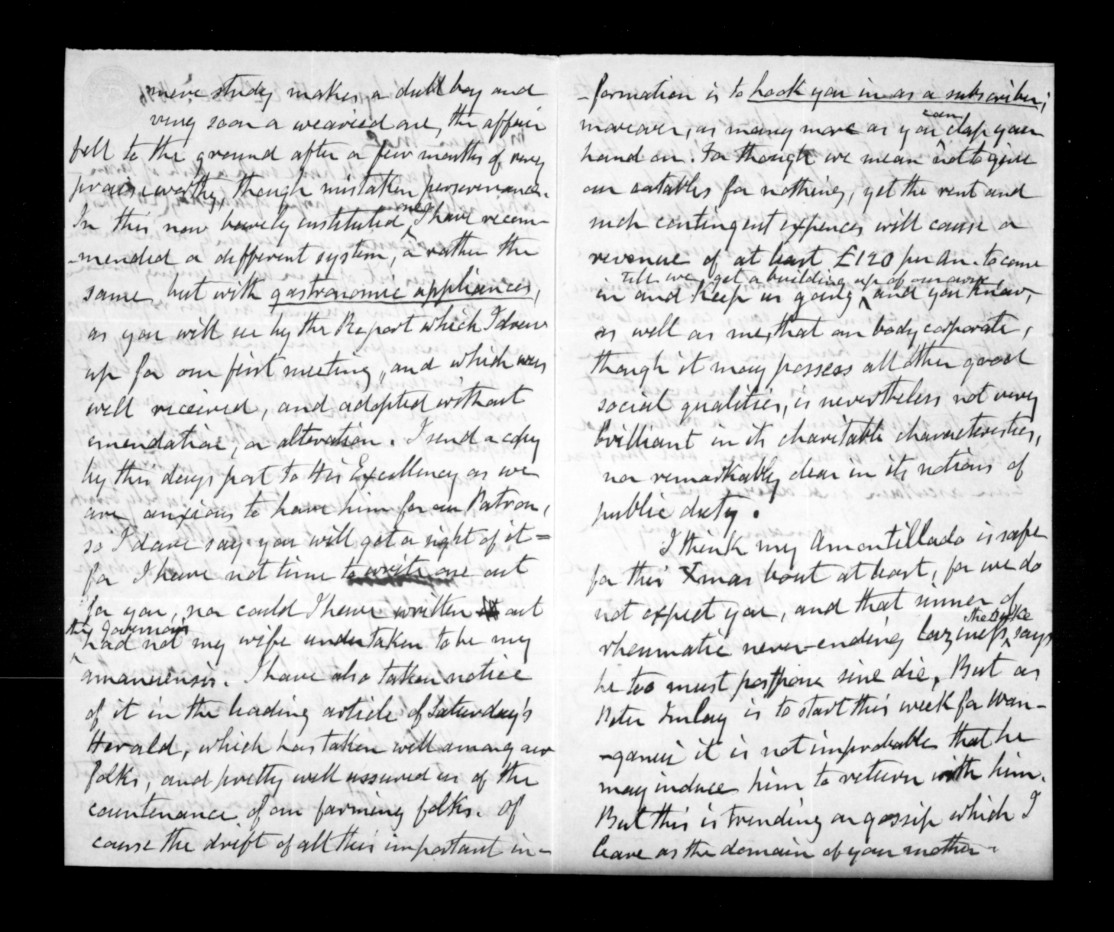 mere study makes a dull boy and
very soon a wearied one, the affair
fell to the ground after a few months of very
praiseworthy, though mistaken perseverance.
In this now instituted one I have recom-
-mended a different system, or rather the
same but with gastronomic appliances,
as you will see by the Report which I drew
up for our first meeting, and which was
well received, and adopted without
emendation, or alteration. I send a copy
by this days post to His Excellency as we
are anxious to have him for our Patron,
so I dare say you will get a sight of it =
for I have not time to write one out
for you, nor could I have written out
the Governor's
had not my wife undertaken to be my
amanuensis. I have also taken notice
of it in the leading article of Saturday's
Herald, which has taken well among our
folks, and pretty well assured us of the
countenance of our farming folks. Of
course the drift of all this important in-
-formation is to hook you in as a subscriber;
can
moreover, as many more as you clap your
hand on. For though we mean not to give
our eatables for nothing, yet the rent and
such contingent expences will cause a
revenue of at least £120 per an. to come
till we get a building up of our own
in and keep us going, and you know,
as well as me, that our body corporate,
though it may possess all other good
social qualities, is nevertheless not very
brilliant in its charitable characteristics,
nor remarkably clear in its notions of
public duty.
I think my Amontillado is safe
for this Xmas bout at least, for we do
not expect you, and that sinner of
rheumatic never-ending laziness, says
he too must postpone sine die, But as
Peter Imlay is to start this week for Wan-
-ganui it is not improbable that he
may induce him to return with him.
But this is trending on gossip which I
leave as the domain of your mother.